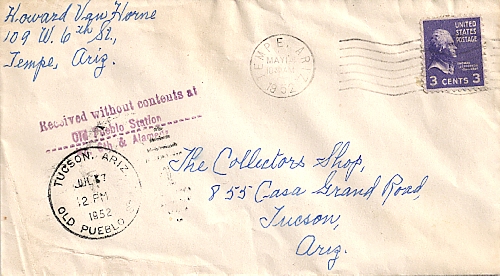 Howard Van Horne
109 W. 6th St.,
Tempe, Ariz.
TEMPE, AR
MAY
1952
UNITED
STATES
POSTAGE
3 CENTS 3
Received without contents at
Old Pueblo Station
6th. & Alameda
TUCSON, ARIZ
JUL 7
12 PM
1952
OLD PUEBLO
The Collectors Shop,
855 Casa Grand Road,
Tucson,
Ariz.